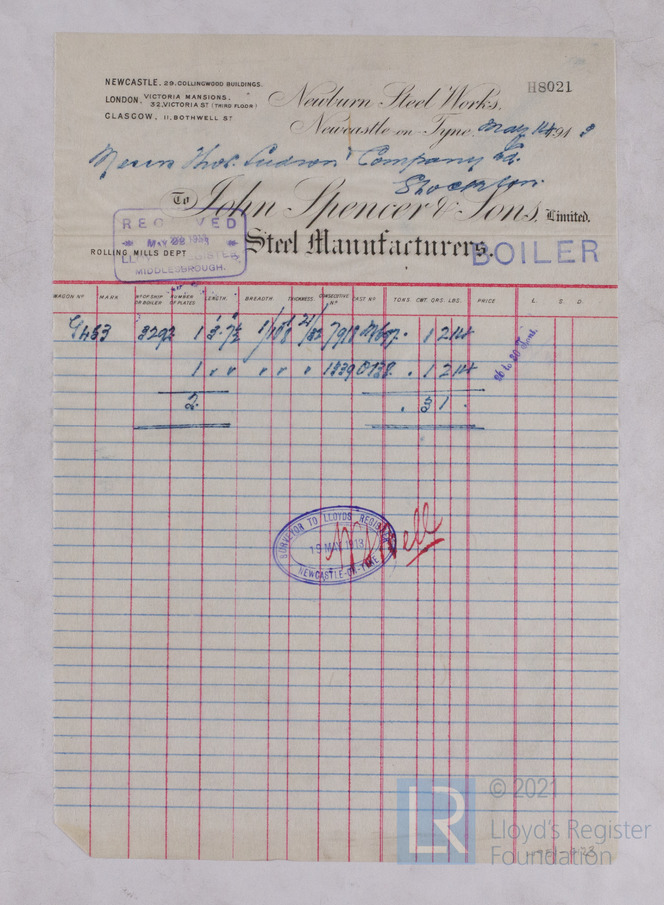 NEWCASTLE. 29. COLLINGWOOD BUILDINGS.
LONDON. VICTORIA MANSIONS. 32, VICTORIA ST (THIRD FLOOR)
GLASCOW. 11, BOTHWELL ST
H8021
Newburn Steel Works,
Newcastle-on-Tyne, May 14 191 3
Messrs Thos. Sudron & Company Ld.
Stockton.
To John Spencer & Sons, Limited.
Steel Manufacturers.
BOILER
RECEIVED
MAY
LLOYD'S REGISTER
MIDDLESBROUGH.
ROLLING MILLS DEPT
WAGON Nº MARK Nº OF SHIP OR BOILER NUMBER OF PLATES LENGTH BREADTH THICKNESS CONSECUTIVE Nº CAST Nº TONS CWT. QRS. LBS. PRICE L. S. D.
3292 1
1 " " " " "
2 . 3 1 .
26 to 30 Tons.
SURVEYOR TO LLOYDS REGISTER
19 MAY 1913
NEWCASTLE-ON-TYNE
LR
© 2021
Lloyd's Register
Foundation